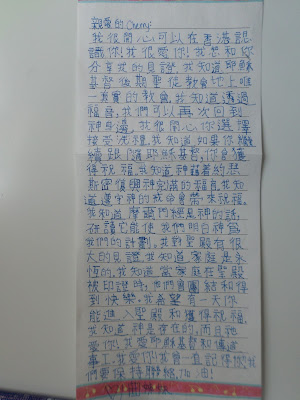 親愛的
我很開心可以在香港認
識你!我很愛你!我想和你
分享我的見證,我知道耶穌
基督後期重從教會地上唯
一真實的教會,我知道透過
福音,我們可以再次回到
神身邊,我很開心你選擇
接受洗禮,我知道如果你繼
續跟隨耶穌基督,你會獲
得祝福,我知道神藉着約瑟
斯密復興神完滿的福音,我知
道遵守神的戒命會帶來祝福,
我知道摩爾門經是神的話,
研讀它能使我們明白神為
我們的計劃,我對聖殿有很
大的見證,我知道家庭是永
恆的,我知道當家庭在聖殿
被印證時,他們會團結和得
到快樂,我希望有一天你
能進入聖殿和獲得祝福,
我知道神是存在的,而且祂
愛你!我愛耶穌基督和傳道
事工,我愛你!我會一直記得你!我
們要保持聯絡,加油!